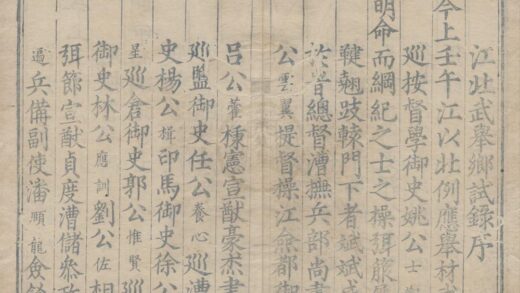 江北武舉鄉試錄序
今上壬午江以北例應舉材武
巡按督學御史姚公士
明命而綱紀之士之操弭
鞬翹跂轅門下者斌斌
於昔總督漕撫兵部尚
公雲翼提督操江僉都御
呂公藿棟憲宣猷豪杰
廵監御史任公養心廵漕
史楊公楫印馬御史徐公
星廵倉御史郭公惟賢廵
御史林公應訓劉公佐相
弭節宣猷貞度漕儲叅政
過兵備副使潘順龍僉